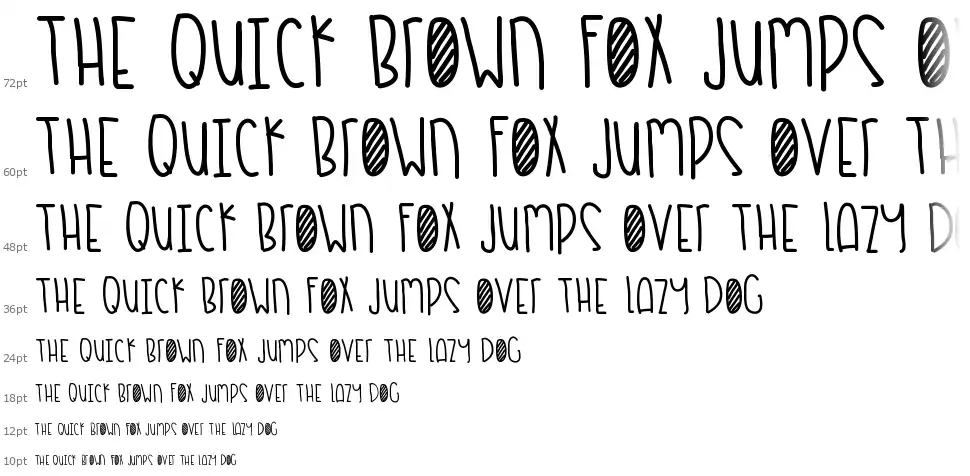 72pt THE QUICK BROWN FOX JUMPS O
60pt THE QUICK BROWN FOX JUMPS OVER TH
48pt THE QUICK BROWN FOX JUMPS OVER THE LAZY D
36pt THE QUICK BROWN FOX JUMPS OVER THE LAZY DOG
24pt THE QUICK BROWN FOX JUMPS OVER THE LAZY DOG
18pt THE QUICK BROWN FOX JUMPS OVER THE LAZY DOG
12pt THE QUICK BROWN FOX JUMPS OVER THE LAZY DOG
10pt THE QUICK BROWN FOX JUMPS OVER THE LAZY DOG